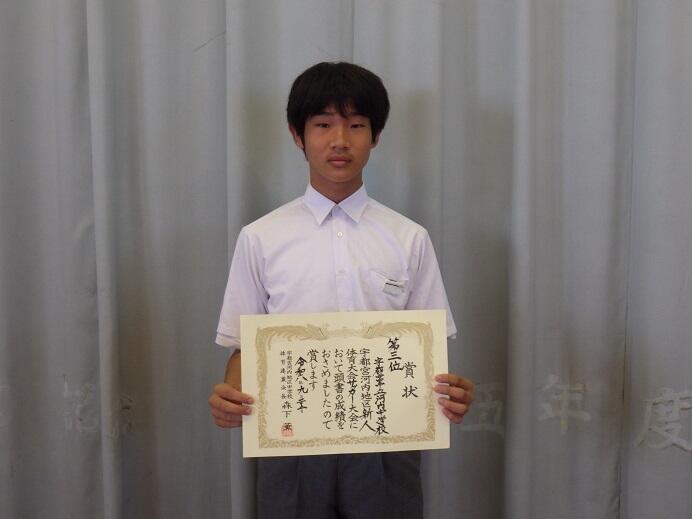 賞状
第三位
中学校
宇都宮河内地区新人
体育大会サッカー大会に
おいて頭書の成績を
おさめましたので
賞します
令和
宇都宮河内地区中学校
体育連盟会長 森下
五年度